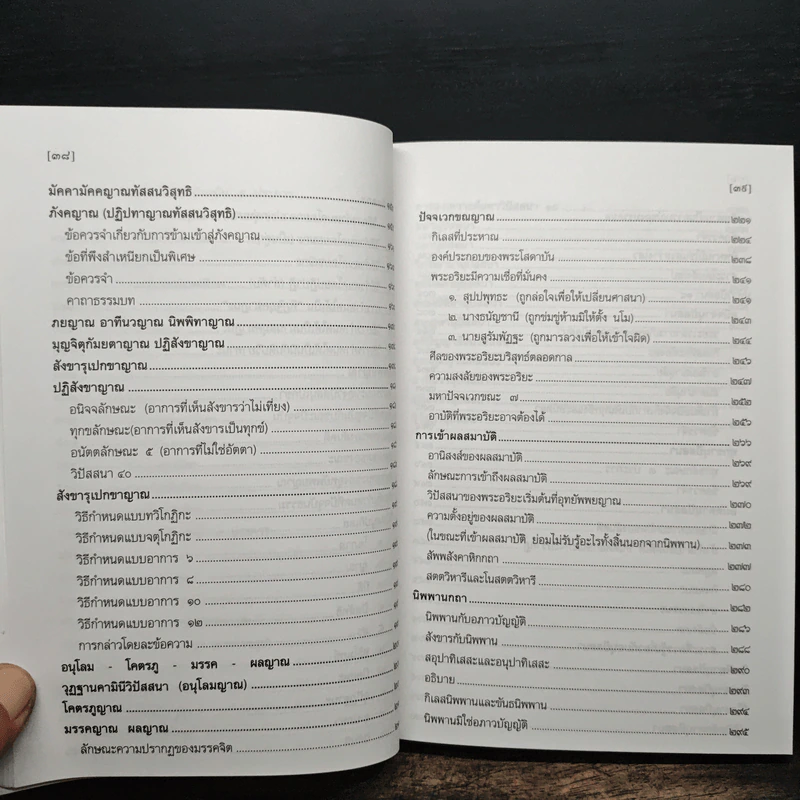 [๓๘]
มัคคามัคคญาณทัสสนวิสุทธิ
ภังคญาณ (ปฏิปทาญาณทัสสนวิสุทธิ)
ข้อควรจำเกี่ยวกับการข้ามเข้าสู่ภังคญาณ
ข้อที่พึงสำเหนียกเป็นพิเศษ
ข้อควรจำ
คาถาธรรมบท
ภยญาณ อาทีนวญาณ นิพพิทาญาณ
มุญจิตุกัมยตาญาณ ปฏิสังขาญาณ
สังขารุเปกขาญาณ
ปฏิสังขาญาณ
อนิจจลักษณะ (อาการที่เห็นสังขารว่าไม่เที่ยง)
ทุกขลักษณะ(อาการที่เห็นสังขารเป็นทุกข์)
อนัตตลักษณะ ๕ (อาการที่ไม่ใช่อัตตา)
วิปัสสนา ๔๐
สังขารุเปกขาญาณ
วิธีกำหนดแบบทวิโกฏิกะ
วิธีกำหนดแบบจตุโกฏิกะ
วิธีกำหนดแบบอาการ ๖
วิธีกำหนดแบบอาการ ๘
วิธีกำหนดแบบอาการ ๑๐
วิธีกำหนดแบบอาการ ๑๒
การกล่าวโดยละข้อความ
อนุโลม - โคตรภู - มรรค - ผลญาณ
วุฏฐานคามินีวิปัสสนา (อนุโลมญาณ)
โคตรภูญาณ
มรรคญาณ ผลญาณ
ลักษณะความปรากฏของมรรคจิต
[๓๙]
ปัจจเวกขณญาณ ๒๒๑
กิเลสที่ประหาณ ๒๒๔
องค์ประกอบของพระโสดาบัน ๒๓๘
พระอริยะมีความเชื่อที่มั่นคง ๒๔๑
๑. สุปปพุทธะ (ถูกล่อใจเพื่อให้เปลี่ยนศาสนา) ๒๔๑
๒. นางธนัญชานี (ถูกข่มขู่ห้ามมิให้ตั้ง นโม) ๒๔๓
๓. นายสูรัมพัฏฐะ (ถูกมารลวงเพื่อให้เข้าใจผิด) ๒๔๔
ศีลของพระอริยะบริสุทธ์ตลอดกาล ๒๔๖
ความสงสัยของพระอริยะ ๒๔๗
มหาปัจจเวกขณะ ๗ ๒๕๒
อาบัติที่พระอริยะอาจต้องได้ ๒๕๖
การเข้าผลสมาบัติ ๒๖๖
อานิสงส์ของผลสมาบัติ ๒๖๙
ลักษณะการเข้าถึงผลสมาบัติ ๒๖๙
วิปัสสนาของพระอริยะเริ่มต้นที่อุทยัพพยญาณ ๒๗๐
ความตั้งอยู่ของผลสมาบัติ ๒๗๒
(ในขณะที่เข้าผลสมาบัติ ย่อมไม่รับรู้อะไรทั้งสิ้นนอกจากนิพพาน) ๒๗๓
สัพพสังคาหิกกถา ๒๗๗
สตตวิหารีและโนสตตวิหารี ๒๘๐
นิพพานกถา ๒๘๒
นิพพานกับอภาวบัญญัติ ๒๘๖
สังขารกับนิพพาน ๒๘๙
สอุปาทิเสสะและอนุปาทิเสสะ ๒๙๐
อธิบาย ๒๙๓
กิเลสนิพพานและขันธนิพพาน ๒๙๔
นิพพานมิใช่อภาวบัญญัติ ๒๙๕